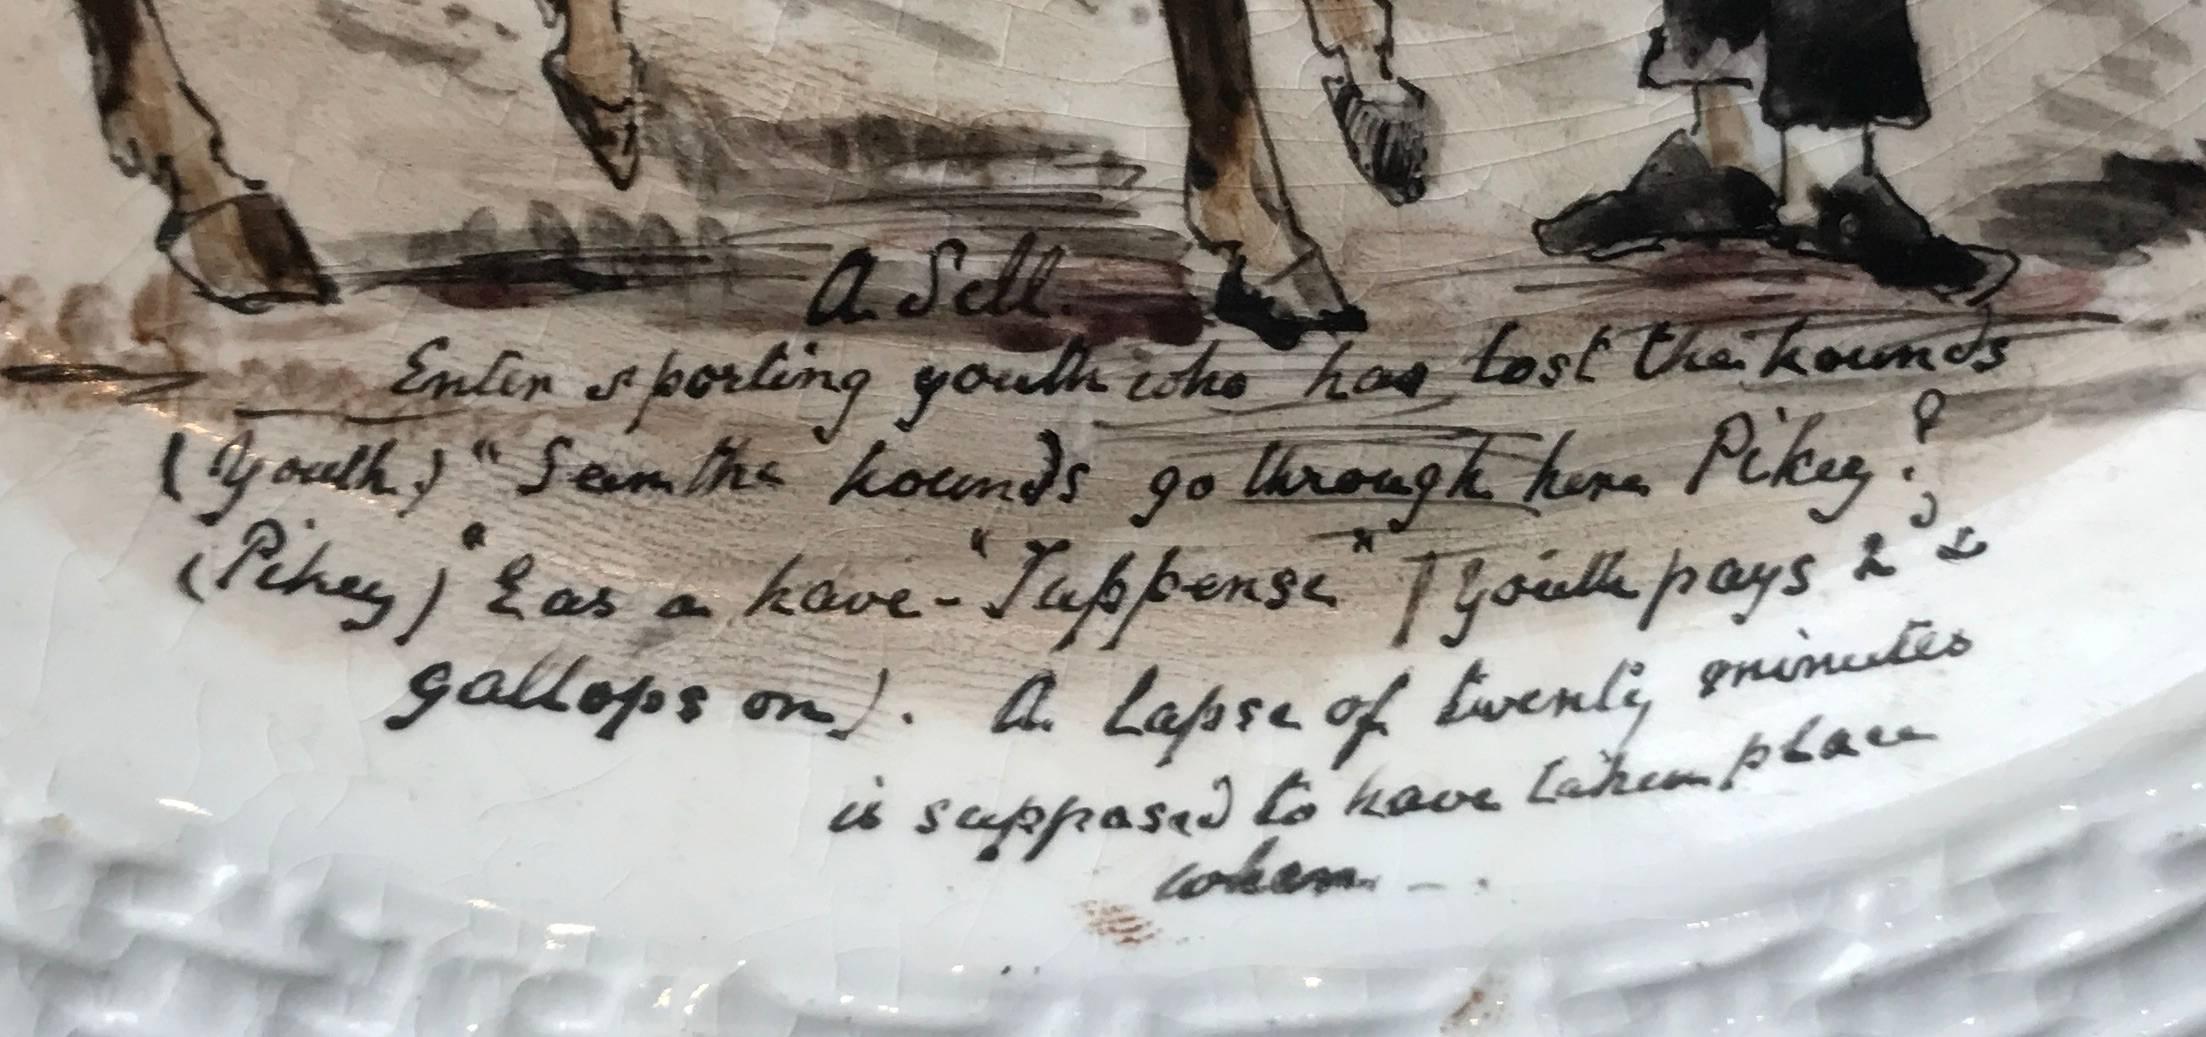 A Sell.
Enter sporting youth who has lost the hounds
(Youth) "Seen the hounds go through here Pikey?"
(Pikey) "E as a have - "Tuppense" (Youth pays 2d &
gallops on). A Lapse of twenty minutes
is supposed to have taken place
when - .